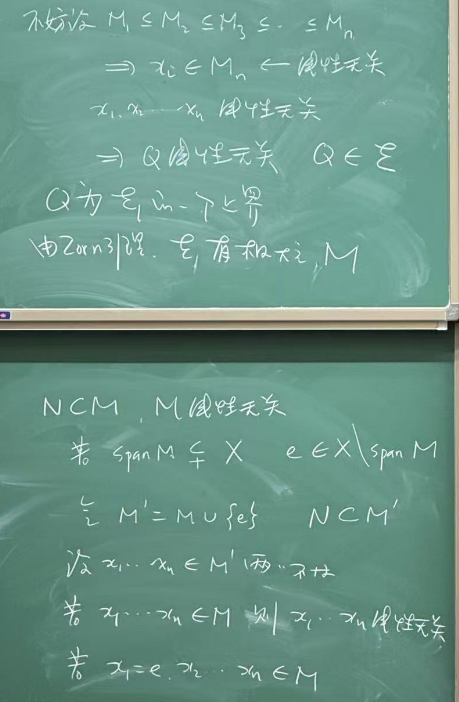 不妨设 M₁ ≤ M₂ ≤ M₃ ≤ ·· ≤ Mₙ
⇒ xᵢ ∈ Mₙ ← 线性无关
x₁, x₂ ··· xₙ 线性无关
⇒ Q 线性无关 Q ∈ ξ
Q为 ξ₁ 的一个上界
由Zorn引理. ξ₁ 有极大元, M
N⊂M, M线性无关
若 span M ⊊ X e ∈ X\span M
令 M' = M ∪ {e} N⊂M'
设 x₁ ··· xₙ ∈ M' 两两不同
若 x₁ ··· xₙ ∈ M 则 x₁ ·· xₙ 线性无关
若 x₁ = e, x₂ ·· xₙ ∈ M